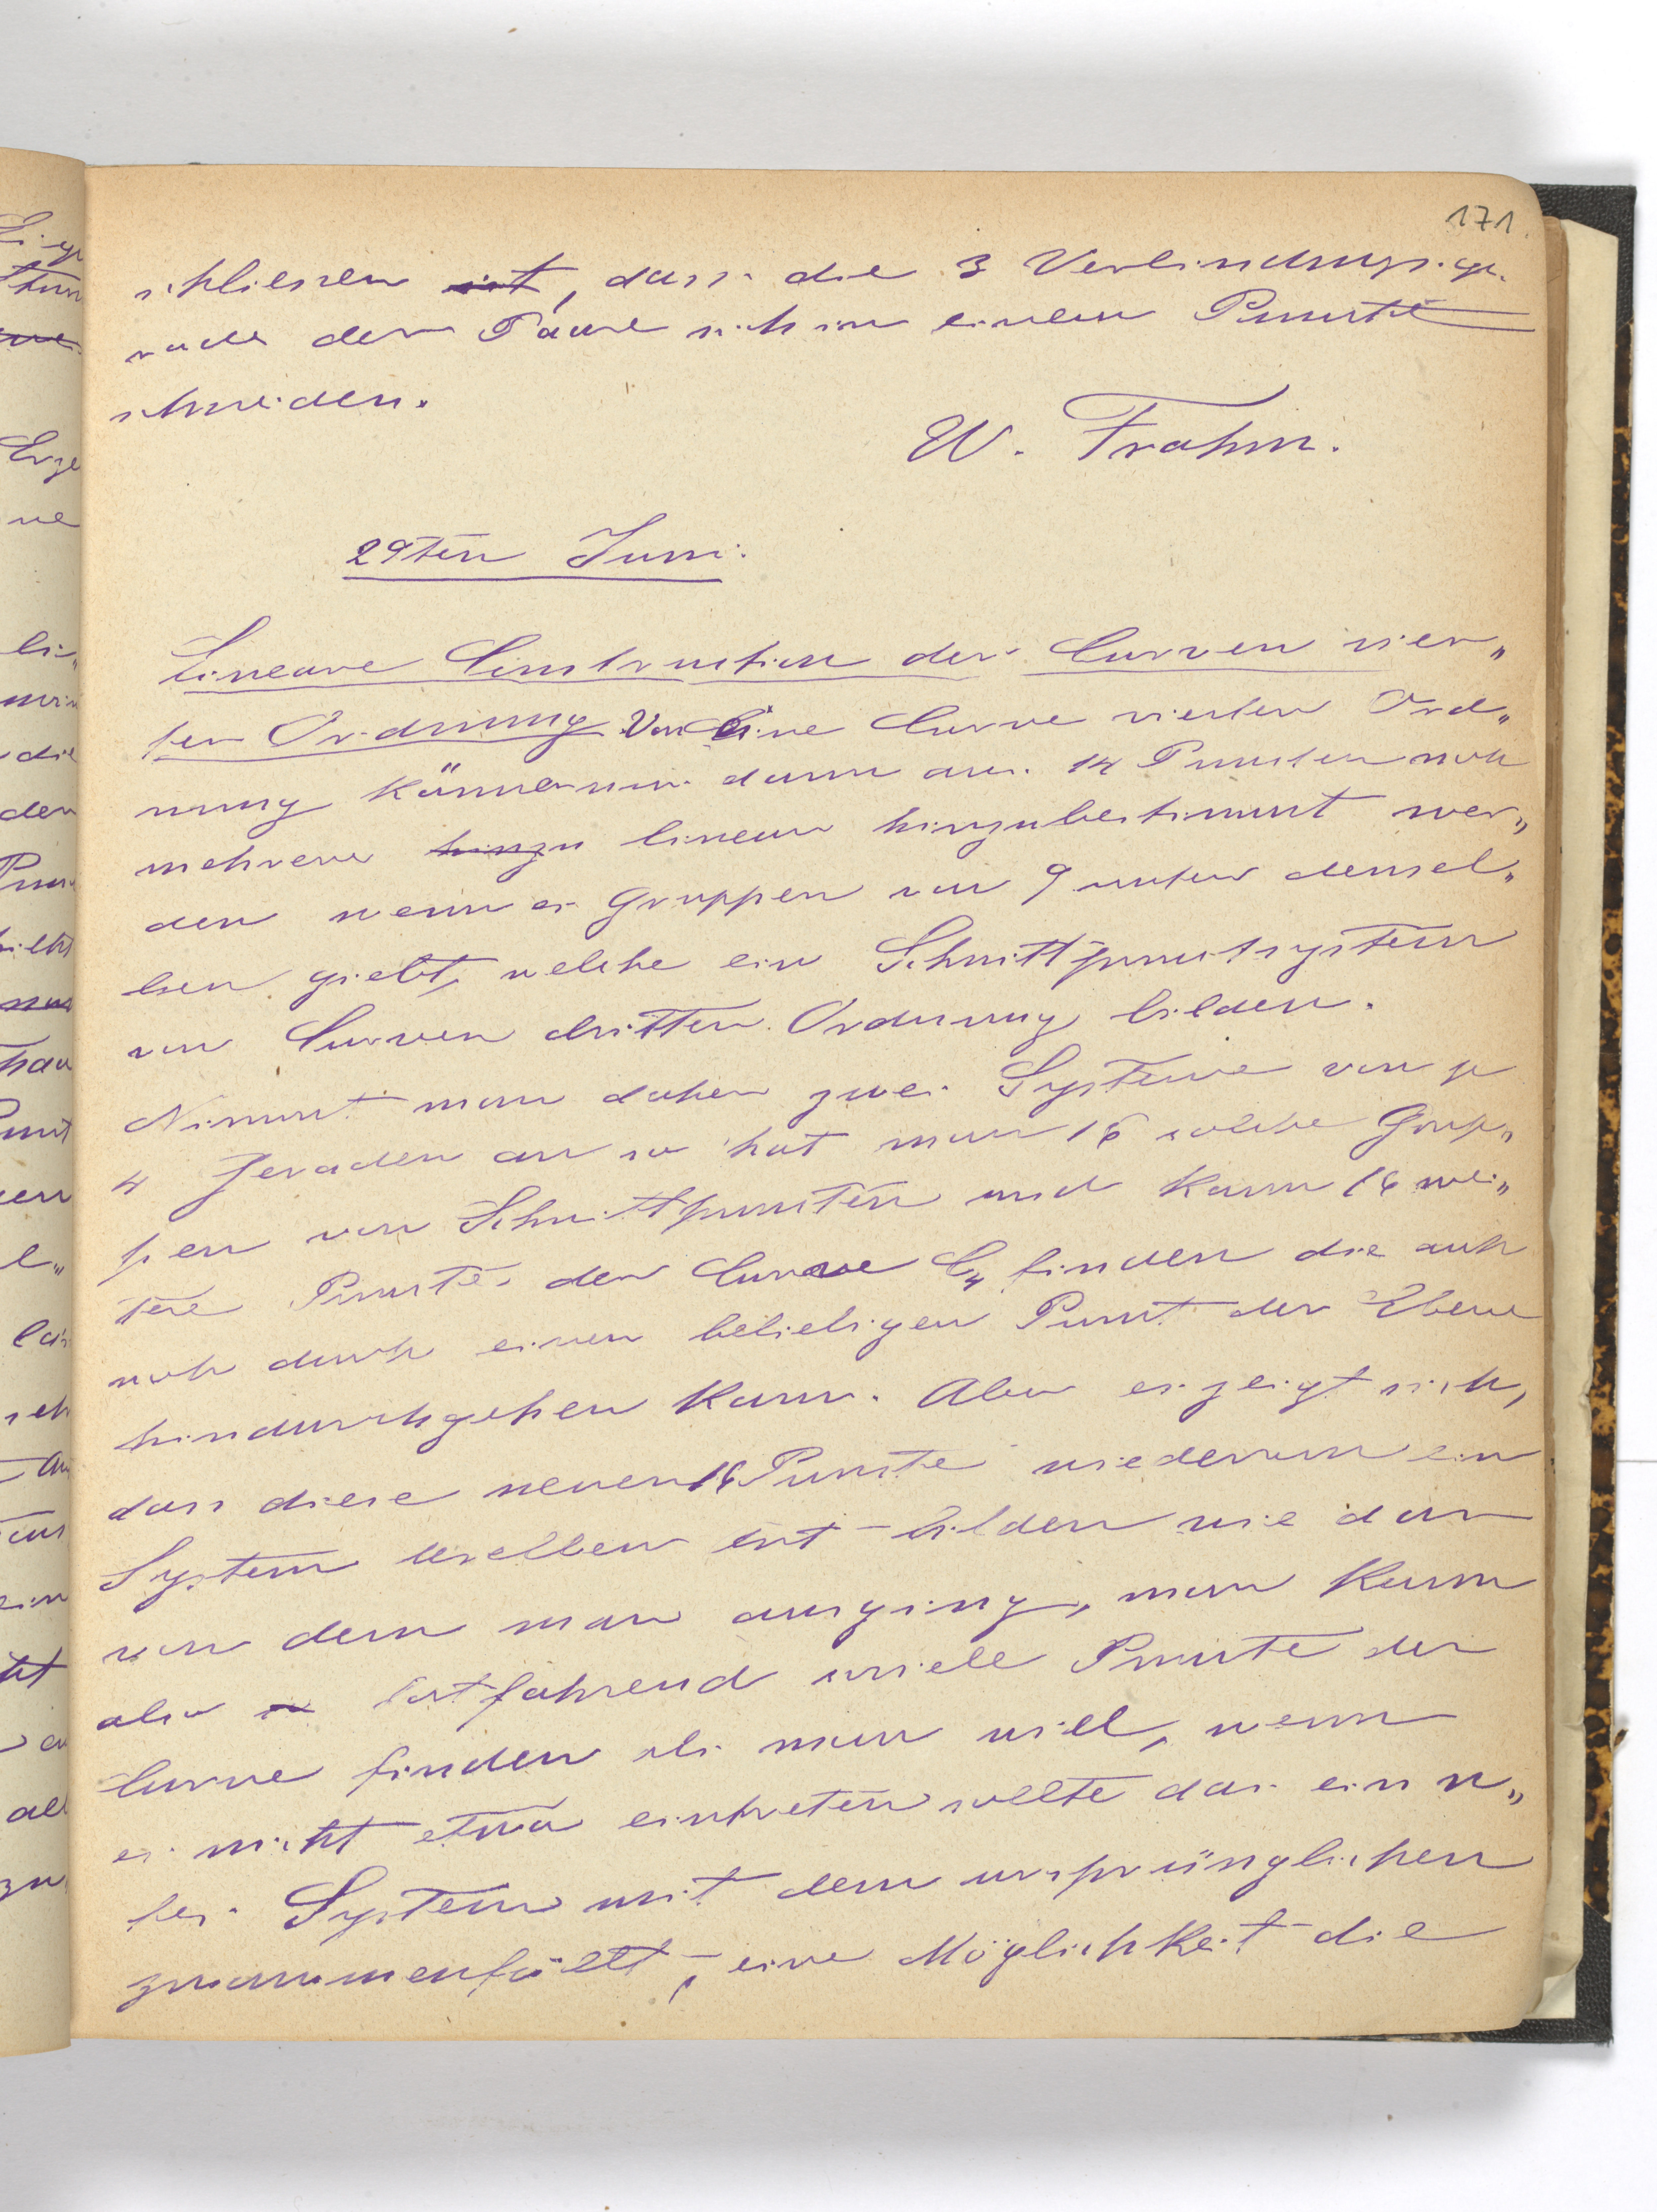 171.
schliessen ist, dass die 3 Verbindungsge-
raden der Paare sich in einem Puncte
schneiden.
W. Frahm.
29ten Juni.
Lineare Construction der Curven vier„
ter Ordnung. Von eine Curve vierter Ord„
nung können nur dann aus 14 Puncten noch
mehrere hinzu linear hinzubestimmt wer„
den wenn es Gruppen von 9 unter densel„
ben giebt, welche ein Schnittpunctsystem
von Curven dritter Ordnung bilden.
Nimmt man daher zwei Systeme von je
4 Geraden an so hat man 16 solche Grup„
pen von Schnittpuncten und kann 16 wei„
tere Puncte der Curve C4 finden die auch
noch durch einen beliebigen Punct der Ebene
hindurchgehen kann. Aber es zeigt sich,
dass diese neuen 16 Puncte wiederum ein
System derselben Art bilden wie das
von dem man ausging, man kann
also fortfahrend soviele Puncte der
Curve finden als man will, wenn
es nicht etwa eintreten sollte das ein n„
tes System mit dem ursprünglichen
zusammenfällt, eine Möglichkeit die